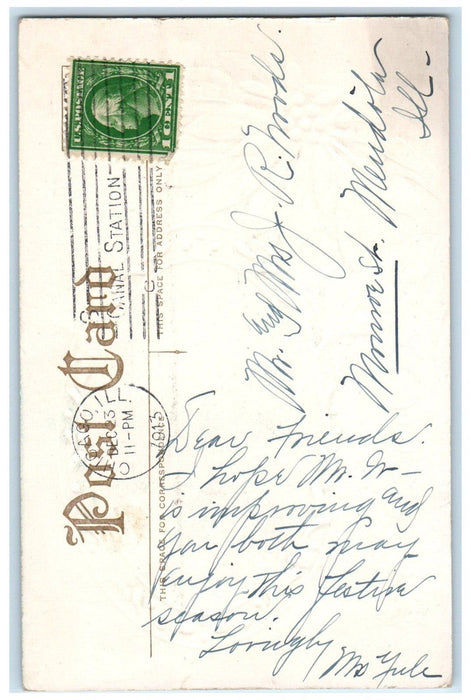 U.S. POSTAGE
1 CENT 1
CANAL STATION
CHICAGO, ILL
DEC 23
11-PM
1913
Post Card
THIS SPACE FOR ADDRESS ONLY
THIS SPACE FOR CORRESPONDENCE
Mr. and Mrs J. R. Woods.
Monroe St. Mendota
Ill-
Dear Friends.
I hope Mr. W-
is improving and
you both may
enjoy this festive
season.
Lovingly
Mrs Yule